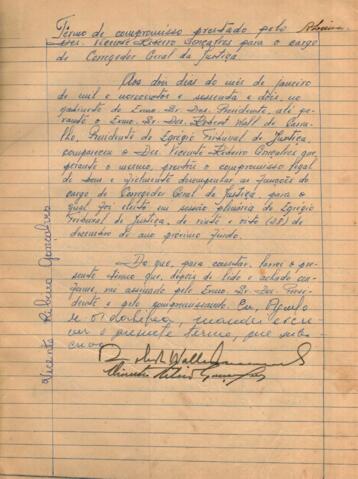 Têrmo de compromisso prestado pelo
Des. Vicente Ribeiro Gonçalves para o cargo
de Corregedor Geral da Justiça.
Aos dois dias do mês de janeiro
de mil e novecentos e sessenta e dois, no
gabinete do Exmo. Sr. Des. Presidente, ali pe-
rante o Exmo. Sr. Des. Robert Wall de Carva-
lho, Presidente do Egrégio Tribunal de Justiça,
compareceu o Des. Vicente Ribeiro Gonçalves que,
perante o mesmo, prestou o compromisso legal
de bem e fielmente desempenhar as funções do
cargo de Corregedor Geral da Justiça, para o
qual foi eleito em sessão plenária do Egrégio
Tribunal de Justiça, de vinte e oito (28) de
dezembro do ano próximo findo.
Do que, para constar, lavrei o pre-
sente têrmo que, depois de lido e achado con-
forme, vai assinado pelo Exmo. Sr. Des. Presi-
dente e pelo compromissando. Eu,
mandei escre-
ver o presente termo, que subs-
crevo.
Vicente Ribeiro Gonçalves
Vicente Ribeiro Gonçalves